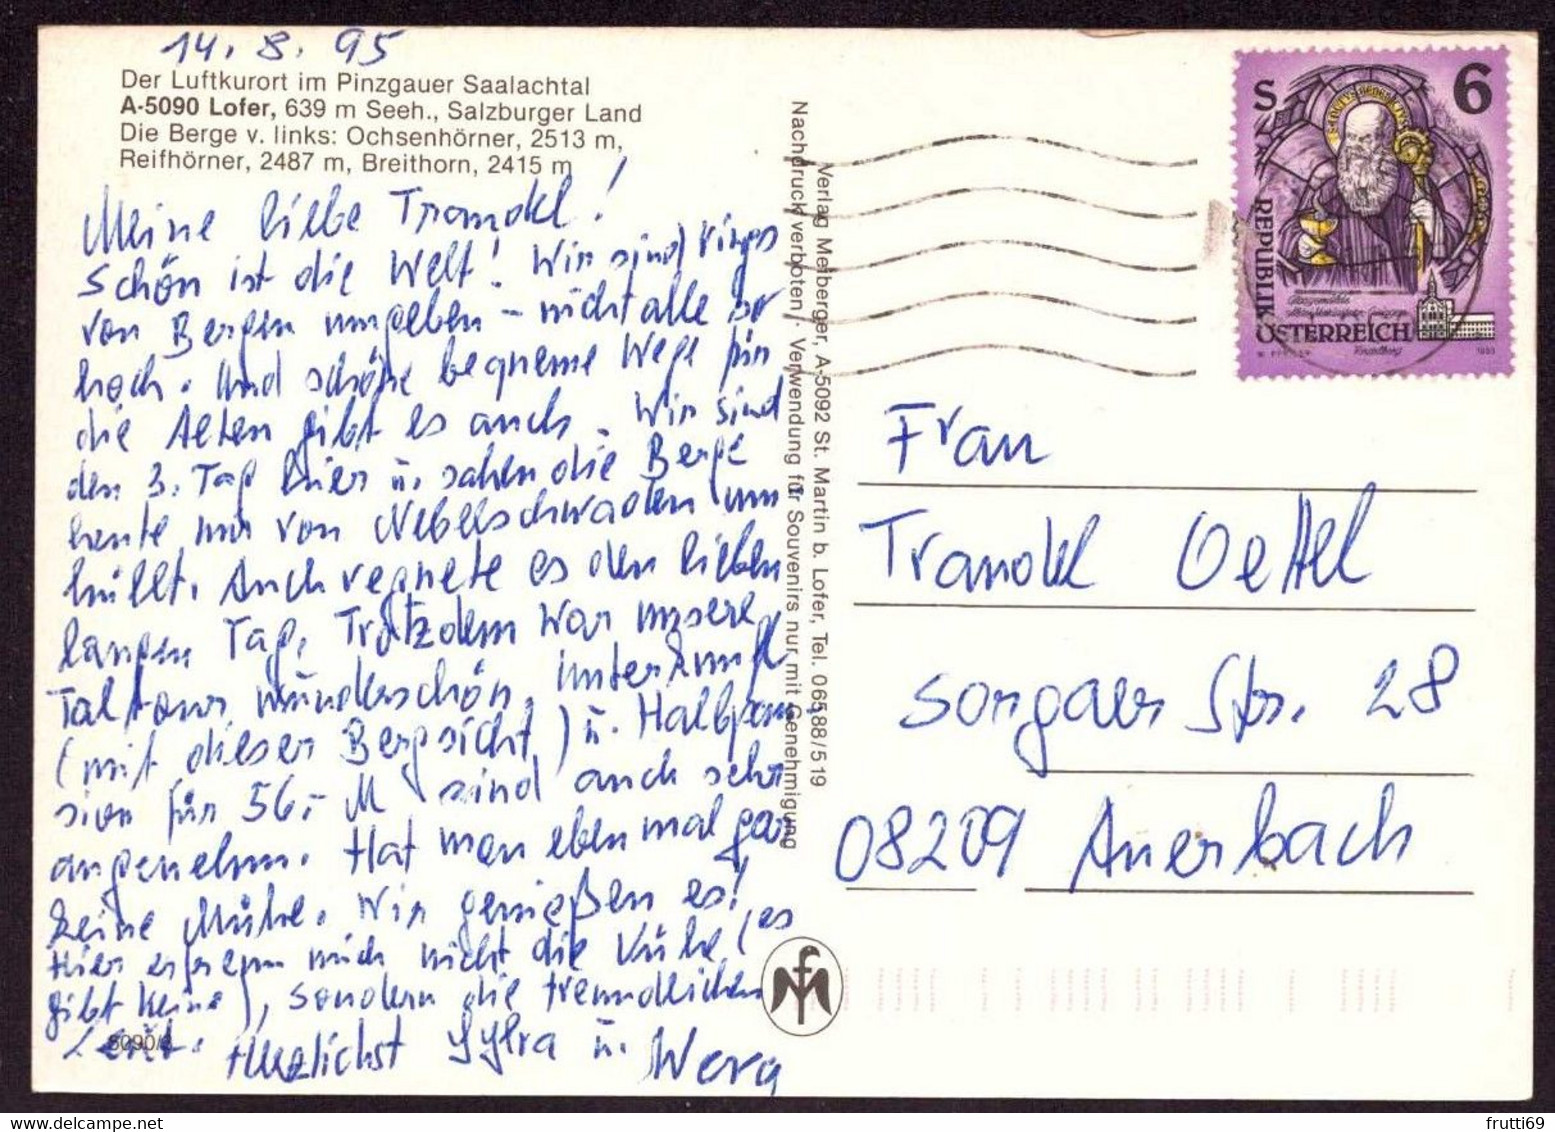 14. 8. 95
Der Luftkurort im Pinzgauer Saalachtal
A-5090 Lofer, 639 m Seeh., Salzburger Land
Die Berge v. links: Ochsenhörner, 2513 m,
Reifhörner, 2487 m, Breithorn, 2415 m
Meine liebe Traudel!
Schön ist die Welt! Wir sind rings
von Bergen umgeben - nicht alle so
hoch. Und schöne bequeme Wege für
die Alten gibt es auch. Wir sind
den 3. Tag hier u. sahen die Berge
heute nur von Nebelschwaden um
hüllt. Auch regnete es den lieben
langen Tag. Trotzdem war unsere
Taltour wunderschön. Unterkunft
(mit dieser Bergsicht) u. Halbpen
sion für 56,- M sind auch sehr
angenehm. Hat man eben mal gar
keine Mühe. Wir genießen es!
Hier erfreun mich nicht die Kühe (es
gibt keine), sondern die freundlichen
Leut. Herzlichst Sylva u. Wera
5090/
Verlag Melberger, A-5092 St. Martin b. Lofer, Tel. 06588/519
Nachdruck verboten! Verwendung für Souvenirs nur mit Genehmigung
S 6
SANCTVS BENEDICTVS
REPUBLIK
ÖSTERREICH
Glasgemälde
Vorarlberg
1993
Frau
Traudel Oettel
Sorgaer Str. 28
08209 Auerbach
frutti69